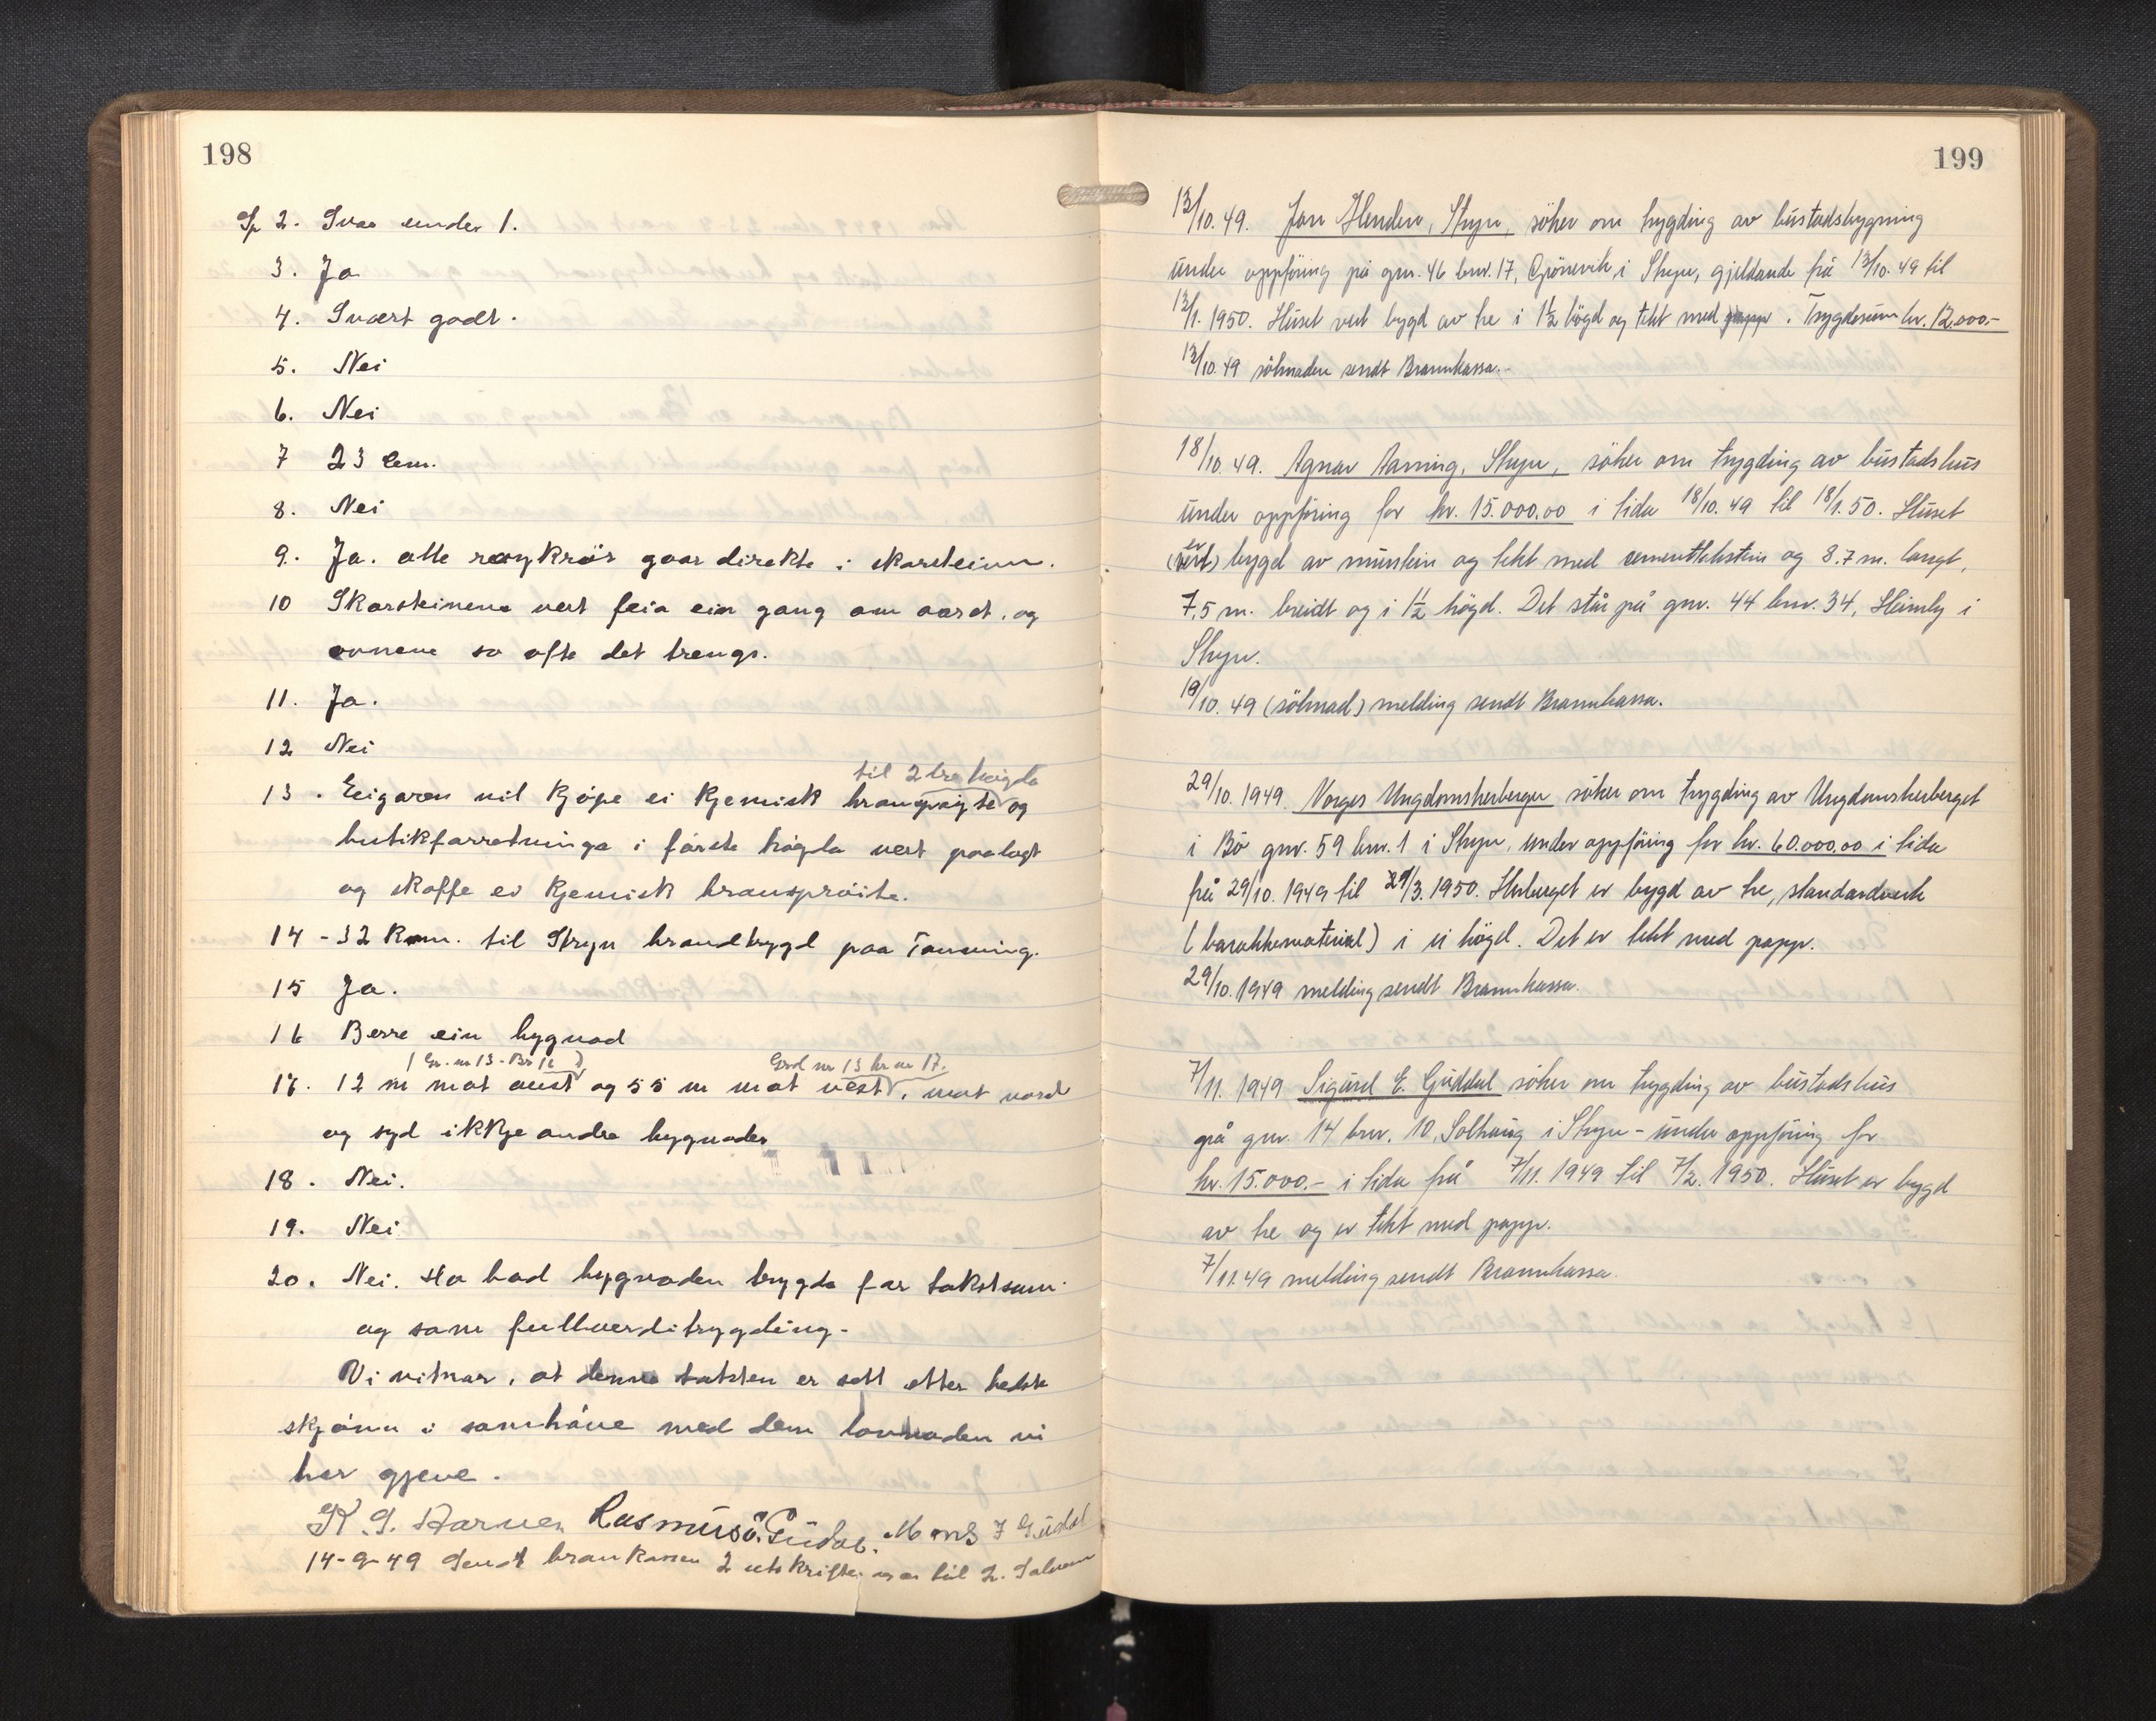 198
Sp 2. Svar under 1.
3. Ja
4. Svært godt.
5. Nei
6. Nei
7 23 cm.
8. Nei
9. Ja. alle røykrör gaar direkte i skorsteinn.
10 Skorsteinene vert feia ein gang om aaret, og
ovnene so ofte det trengs.
11. Ja.
12 Nei
til 2dre högda
13. Eigaren vil kjöpe ei kjemisk branspröyte og
butikforretninga i förste högda vert paalagt
og skaffe ei kjemisk branspröite.
14 - 32 km. til Stryn brandtrygd paa Tonning.
15 Ja.
16 Berre ein bygnad
(Gr. nr 13 - Br 12) Grd nr 13 br nr 17.
17. 12 m mot aust og 55 m mot vest, mot nord
og syd ikkje andre bygnader
18. Nei.
19. Nei
20. Nei. Ho bad bygnaden trygda for takstsum
og som fullverditrygding.
Vi vitnar, at denne taksten er sett etter beste
skjönn i samhöve med den lovnaden vi
har gjeve.
K. S. Aarnes Rasmus O. Gudal. Mons J Gudal
14-9-49 Sendt brankassen 2 utskrifter til L.
199
13/10. 49. Jon Henden, Stryn, söker om trygding av bustadsbygning
under oppföring på gnr. 46 bnr. 17, Grönevik i Stryn, gjeldande frå 13/10. 49 til
13/1. 1950. Huset vert bygd av tre i 1½ högd og tekt med papp. Trygdesum kr. 12.000.-
13/10. 49 söknaden sendt Brannkassa.
18/10. 49. Agnar Aaning, Stryn, söker om trygding av bustadshus
under oppföring for kr. 15.000,00 i tida 18/10. 49 til 18/1. 50. Huset
er
(vert) bygd av murstein og tekt med cementtakstein og 8.7 m. langt,
7,5 m. breidt og i 1½ högd. Det står på gnr. 44 bnr. 34, Heimly i
Stryn.
19/10. 49 (söknad) melding sendt Brannkassa.
29/10. 1949. Norges Ungdomsherberger söker om trygding av Ungdomsherberget
i Bö gnr. 59 bnr. 1 i Stryn, under oppföring for kr. 60.000,00 i tida
frå 29/10. 1949 til 29/3. 1950. Herberget er bygd av tre, standardverk
(barakkematerial) i ei högd. Det er tekt med papp.
29/10. 1949 melding sendt Brannkassa.
7/11. 1949 Sigurd E. Guddal söker om trygding av bustadshus
på gnr. 14 bnr. 10, Solhaug i Stryn - under oppföring for
kr. 15.000.- i tida frå 7/11. 1949 til 7/2. 1950. Huset er bygd
av tre og er tekt med papp.
7/11. 49 melding sendt Brannkassa.